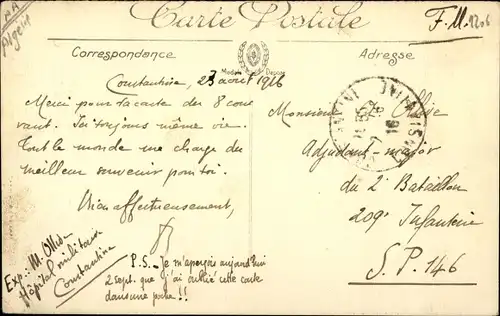 Carte Postale
F.M.
Algérie
Correspondance
Modèle Déposé
Adresse
Constantine, 23 août 1916
Merci pour ta carte du 8 cou-
rant. Ici toujours même vie.
Tout le monde me charge du
meilleur souvenir pour toi.
Bien affectueusement,
P.S. Je m'aperçois aujourd'hui
2 sept. que j'ai oublié cette carte
dans une poche !!
Exp: M. Ollié
Hôpital militaire
Constantine
Monsieur Ollié
Adjudant-major
du 2e Bataillon
209e Infanterie
S.P. 146